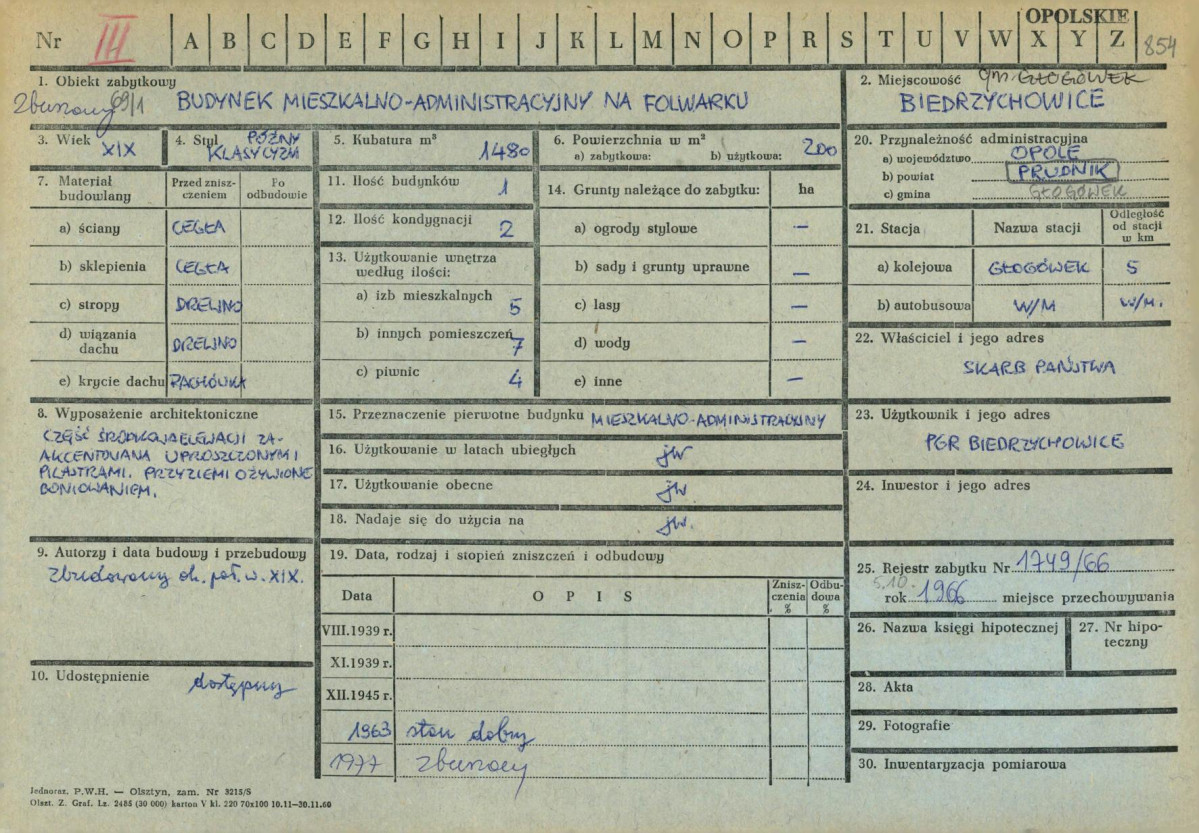 OPOLSKIE
Nr III A B C D E F G H I J K L M N O P R S T U V W X Y Z 854
1. Obiekt zabytkowy
69/1 BUDYNEK MIESZKALNO-ADMINISTRACYJNY NA FOLWARKU
2. Miejscowość gm. GŁOGÓWEK
BIEDRZYCHOWICE
3. Wiek XIX
4. Styl PÓŹNY
KLASYCYZM
5. Kubatura m³ 1480
6. Powierzchnia w m²
a) zabytkowa: b) użytkowa: 200
7. Materiał budowlany
Przed zniszczeniem
Po odbudowie
a) ściany CEGŁA
b) sklepienia CEGŁA
c) stropy DREWNO
d) wiązania dachu DREWNO
e) krycie dachu DACHÓWKA
8. Wyposażenie architektoniczne
CZĘŚĆ ŚRODKOWA ELEWACJI ZA-
AKCENTOWANA UPROSZCZONYMI
PILASTRAMI. PRZYZIEMI OŻYWIONE
BONIOWANIEM.
9. Autorzy i data budowy i przebudowy
Zbudowany ok. poł. w. XIX.
10. Udostępnienie
dostępny
11. Ilość budynków 1
12. Ilość kondygnacji 2
13. Użytkowanie wnętrza
według ilości:
a) izb mieszkalnych 5
b) innych pomieszczeń 7
c) piwnic 4
14. Grunty należące do zabytku: ha
a) ogrody stylowe —
b) sady i grunty uprawne —
c) lasy —
d) wody —
e) inne —
15. Przeznaczenie pierwotne budynku MIESZKALNO-ADMINISTRACYJNY
16. Użytkowanie w latach ubiegłych jw
17. Użytkowanie obecne jw
18. Nadaje się do użycia na jw.
19. Data, rodzaj i stopień zniszczeń i odbudowy
Data OPIS Zniszczenia % Odbudowa %
VIII.1939 r.
XI.1939 r.
XII.1945 r.
1963 stan dobry
1977
20. Przynależność administracyjna
a) województwo OPOLE
b) powiat PRUDNIK
c) gmina GŁOGÓWEK
21. Stacja Nazwa stacji Odległość od stacji w km
a) kolejowa GŁOGÓWEK 5
b) autobusowa W/M W/M.
22. Właściciel i jego adres
SKARB PAŃSTWA
23. Użytkownik i jego adres
PGR BIEDRZYCHOWICE
24. Inwestor i jego adres
25. Rejestr zabytku Nr 1749/66
5.10.
rok 1966 miejsce przechowywania
26. Nazwa księgi hipotecznej
27. Nr hipoteczny
28. Akta
29. Fotografie
30. Inwentaryzacja pomiarowa
Jednoraz. P.W.H. — Olsztyn, zam. Nr 3215/S
Olszt. Z. Graf. Lz. 2485 (30 000) karton V kl. 220 70x100 10.11—30.11.60